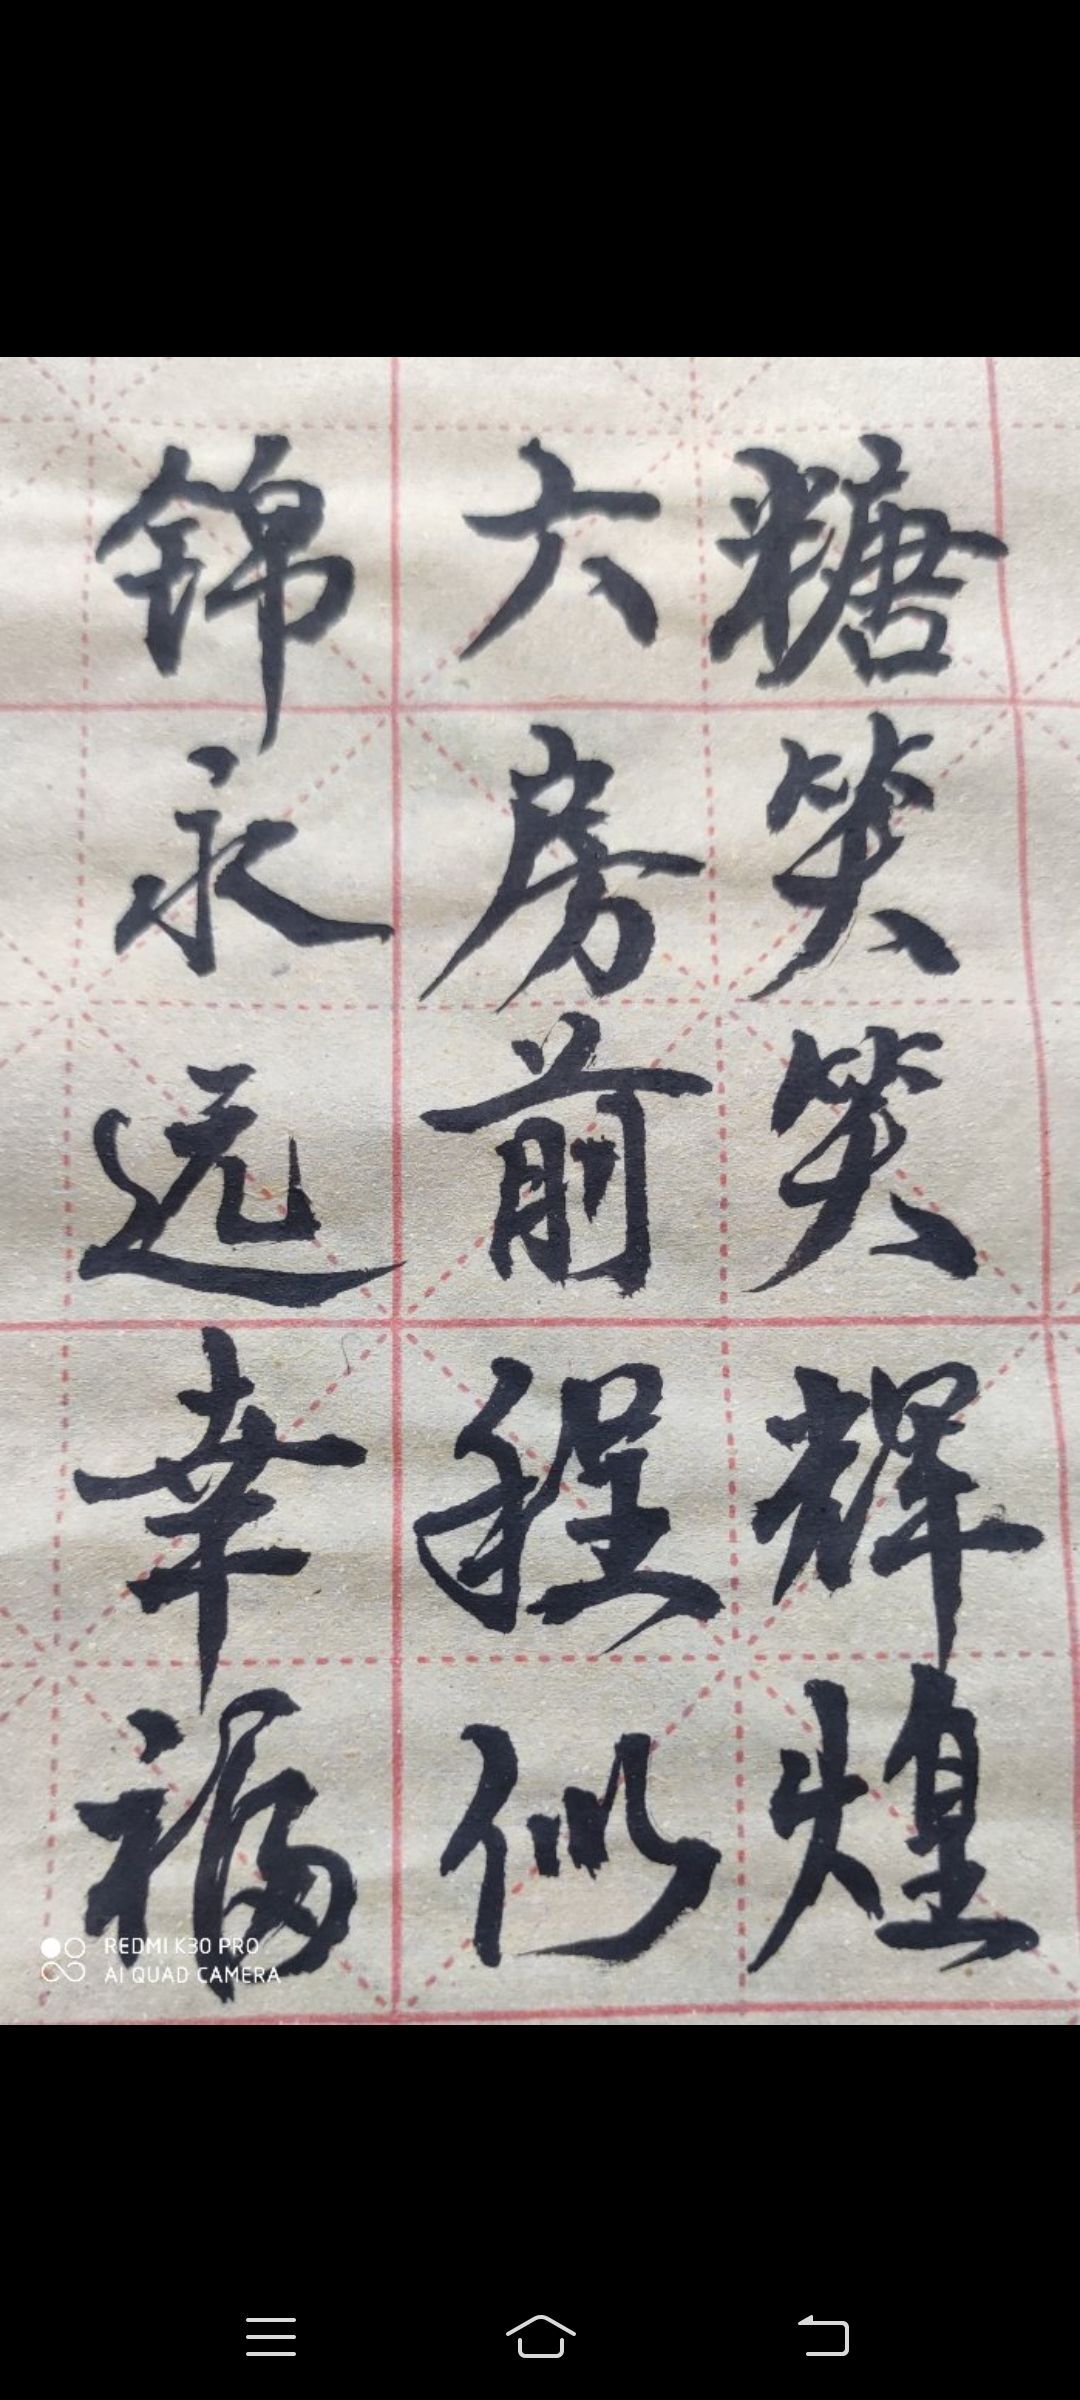 糖笑笑辉煌
六房前程似
锦永远幸福
REDMI K30 PRO
AI QUAD CAMERA